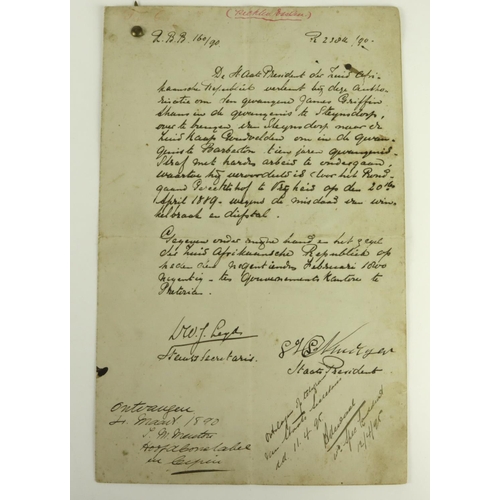 R 160/90
De Staats President der Zuid Afri-
kaansche Republiek verleent bij deze autho-
risatie om den gevangene James Griffin
thans in de gevangenis te Steynsdorp,
over te brengen van Steynsdorp naar de
Zuid Kaap Goudvelden om in de gevan-
genis te Barberton tien jaren gevangenis
straf met harden arbeid te ondergaan,
waartoe hij veroordeeld is door het Rond-
gaande Gerechtshof te Vryheid op den 20sten
April 1889 wegens de misdaad van win-
kelbraak en diefstal.
Gegeven onder mijne hand en het zegel
der Zuid Afrikaansche Republiek op
heden den negentienden Februari 1800
negentig - ten Gouvernements Kantore te
Pretoria.
Dr W. J. Leyds
Staatssecretaris.
S J P Kruger
Staats President
Ontvangen
Maart 1890
Hoofd Constabel
in
11.4.95
12/4/95